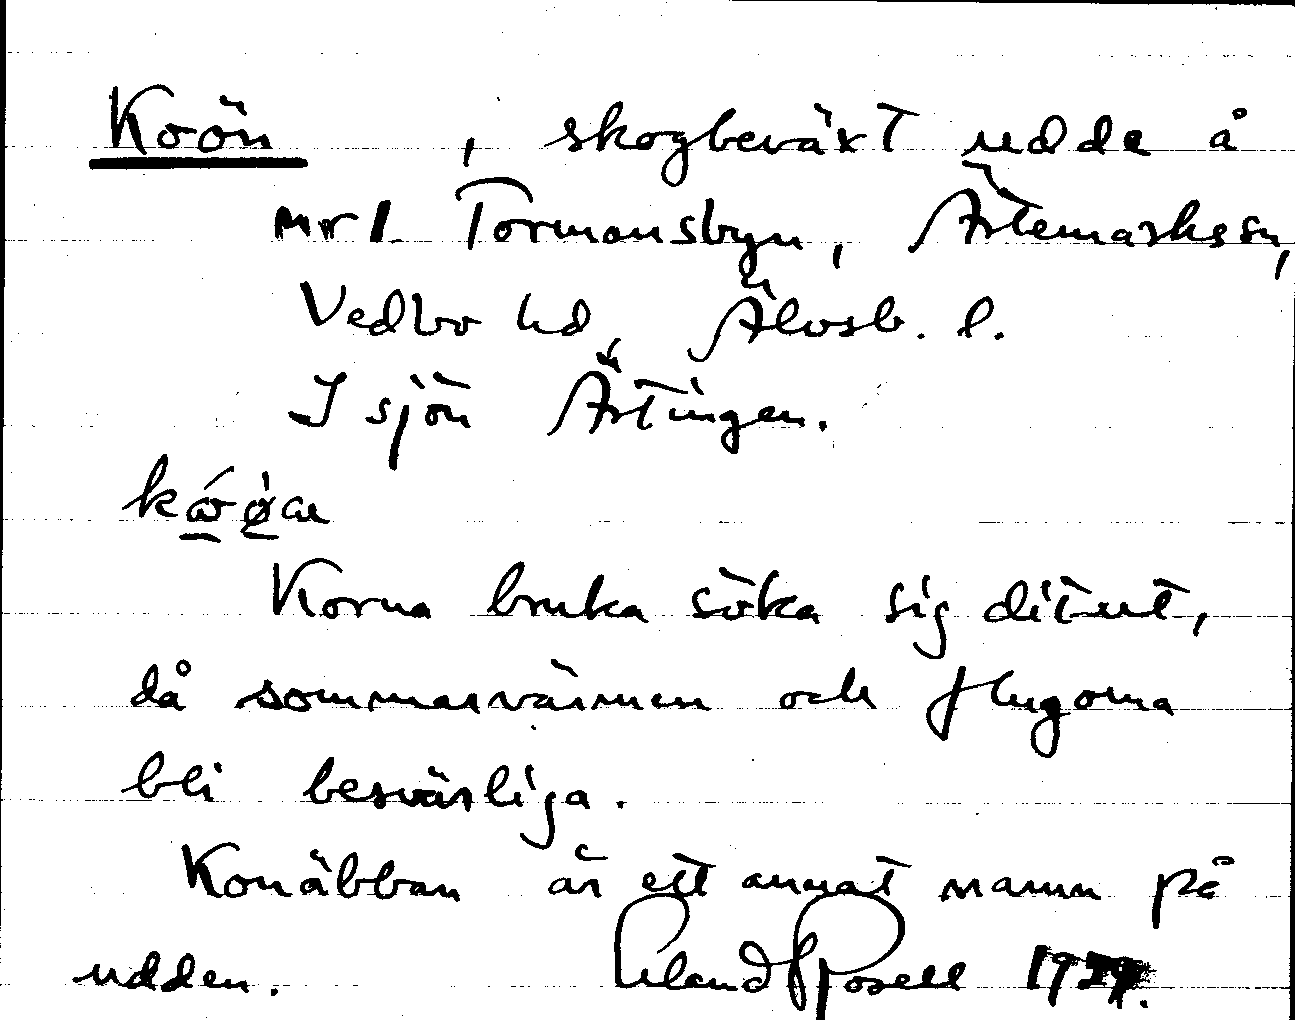 Koön , skogbeväxt udde å
nr 1 Tormansbyn, Ärtemarks sn,
Vedbo hd, Älvsb. l.
I sjön Ärtingen.
Korna bruka söka sig ditut,
då sommarvärmen och flugorna
bli besvärliga.
Konäbban är ett annat namn på
udden.